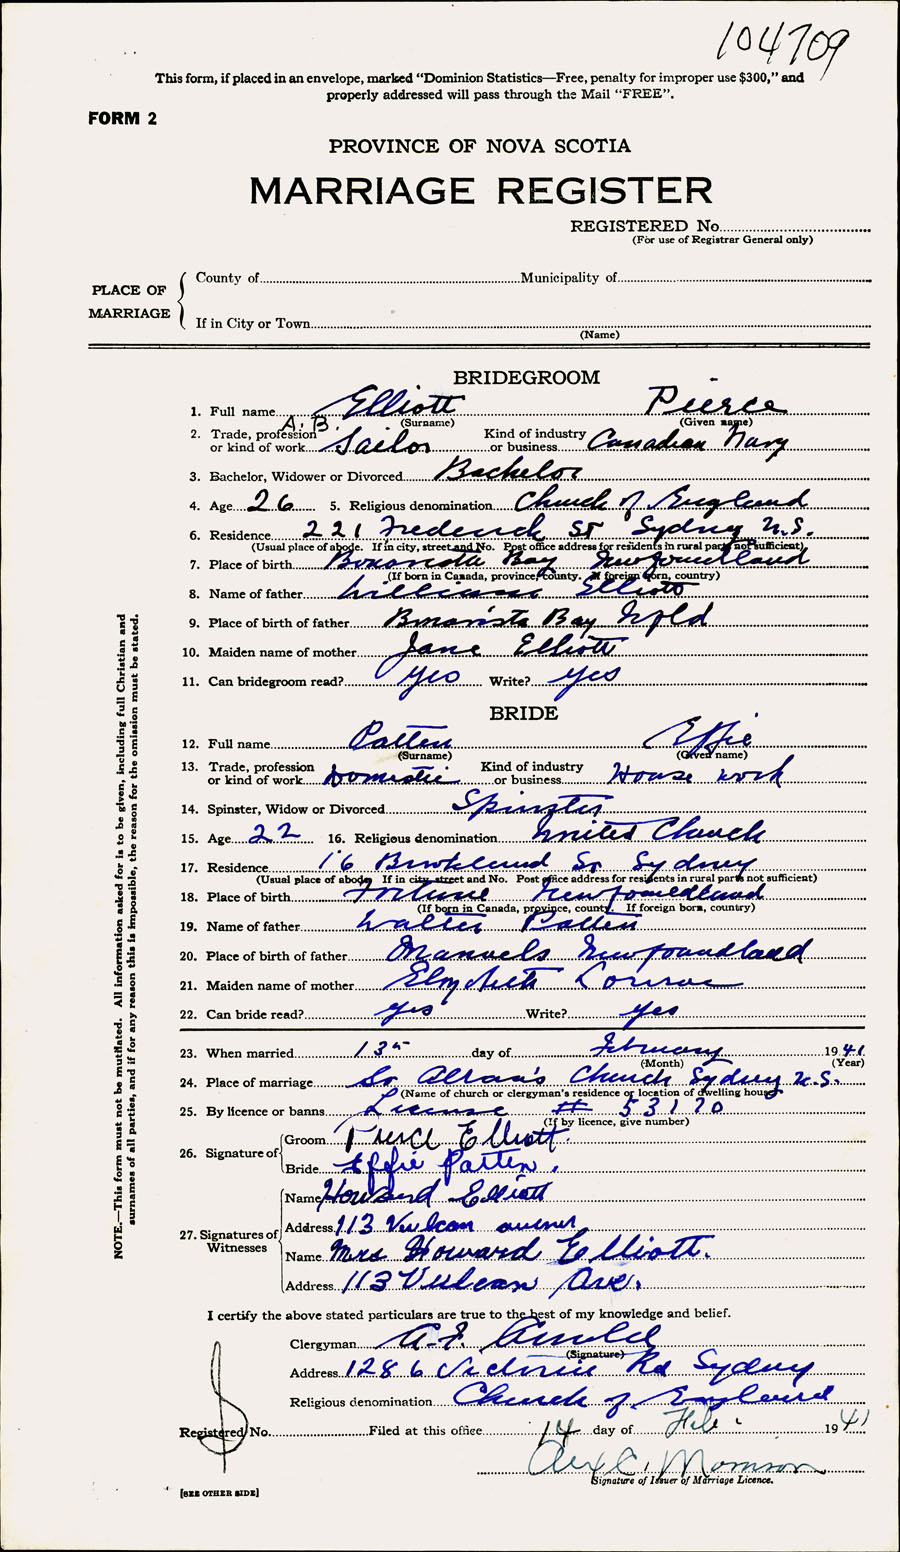 104709
This form, if placed in an envelope, marked "Dominion Statistics—Free, penalty for improper use $300," and
properly addressed will pass through the Mail "FREE".
FORM 2
PROVINCE OF NOVA SCOTIA
MARRIAGE REGISTER
REGISTERED No.
(For use of Registrar General only)
PLACE OF MARRIAGE
County of Municipality of
If in City or Town
(Name)
BRIDEGROOM
1. Full name Elliott Pierce
(Surname) (Given name)
A.B.
2. Trade, profession or kind of work Sailor Kind of industry or business Canadian Navy
3. Bachelor, Widower or Divorced Bachelor
4. Age 26 5. Religious denomination Church of England
6. Residence 221 Frederick St Sydney N.S.
(Usual place of abode. If in city, street and No. Post office address for residents in rural parts not sufficient)
7. Place of birth Bonavista Bay Newfoundland
(If born in Canada, province, county. If foreign born, country)
8. Name of father William Elliott
9. Place of birth of father Bonavista Bay Nfld
10. Maiden name of mother Jane Elliott
11. Can bridegroom read? Yes Write? Yes
BRIDE
12. Full name Patten Effie
(Surname) (Given name)
13. Trade, profession or kind of work Domestic Kind of industry or business House work
14. Spinster, Widow or Divorced Spinster
15. Age 22 16. Religious denomination United Church
17. Residence 16 St Sydney
(Usual place of abode. If in city, street and No. Post office address for residents in rural parts not sufficient)
18. Place of birth Fortune Newfoundland
(If born in Canada, province, county. If foreign born, country)
19. Name of father Walter Patten
20. Place of birth of father Manuels Newfoundland
21. Maiden name of mother Elizabeth
22. Can bride read? Yes Write? Yes
23. When married 13th day of February 1941
(Month) (Year)
24. Place of marriage St Church Sydney N.S.
(Name of church or clergyman's residence or location of dwelling house)
25. By licence or banns License # 53170
(If by licence, give number)
26. Signature of
Groom Pierce Elliott.
Bride Effie Patten.
27. Signatures of Witnesses
Name Howard Elliott
Address 113 Vulcan avenue
Name Mrs Howard Elliott.
Address 113 Vulcan Ave.
I certify the above stated particulars are true to the best of my knowledge and belief.
Clergyman Arnold
(Signature)
Address 1286 Victoria Rd Sydney
Religious denomination Church of England
Registered No. Filed at this office 14 day of Feb. 1941
C. Morrison
Signature of Issuer of Marriage Licence.
[SEE OTHER SIDE]
NOTE.—This form must not be mutilated. All information asked for is to be given, including full Christian and
surnames of all parties, and if for any reason this is impossible, the reason for the omission must be stated.